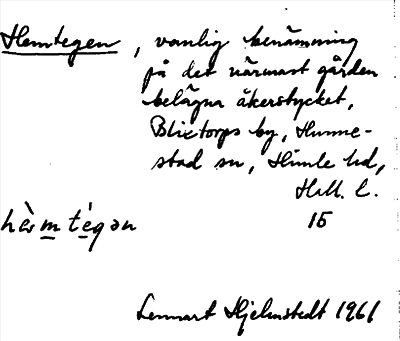 Hemtegen, vanlig benämning
på det närmast gården
belägna åkerstycket,
Blixtorps by, Hunne-
stad sn, Himle hd,
Hall. l.
15
hèmtégən
Lennart Hjelmstedt 1961